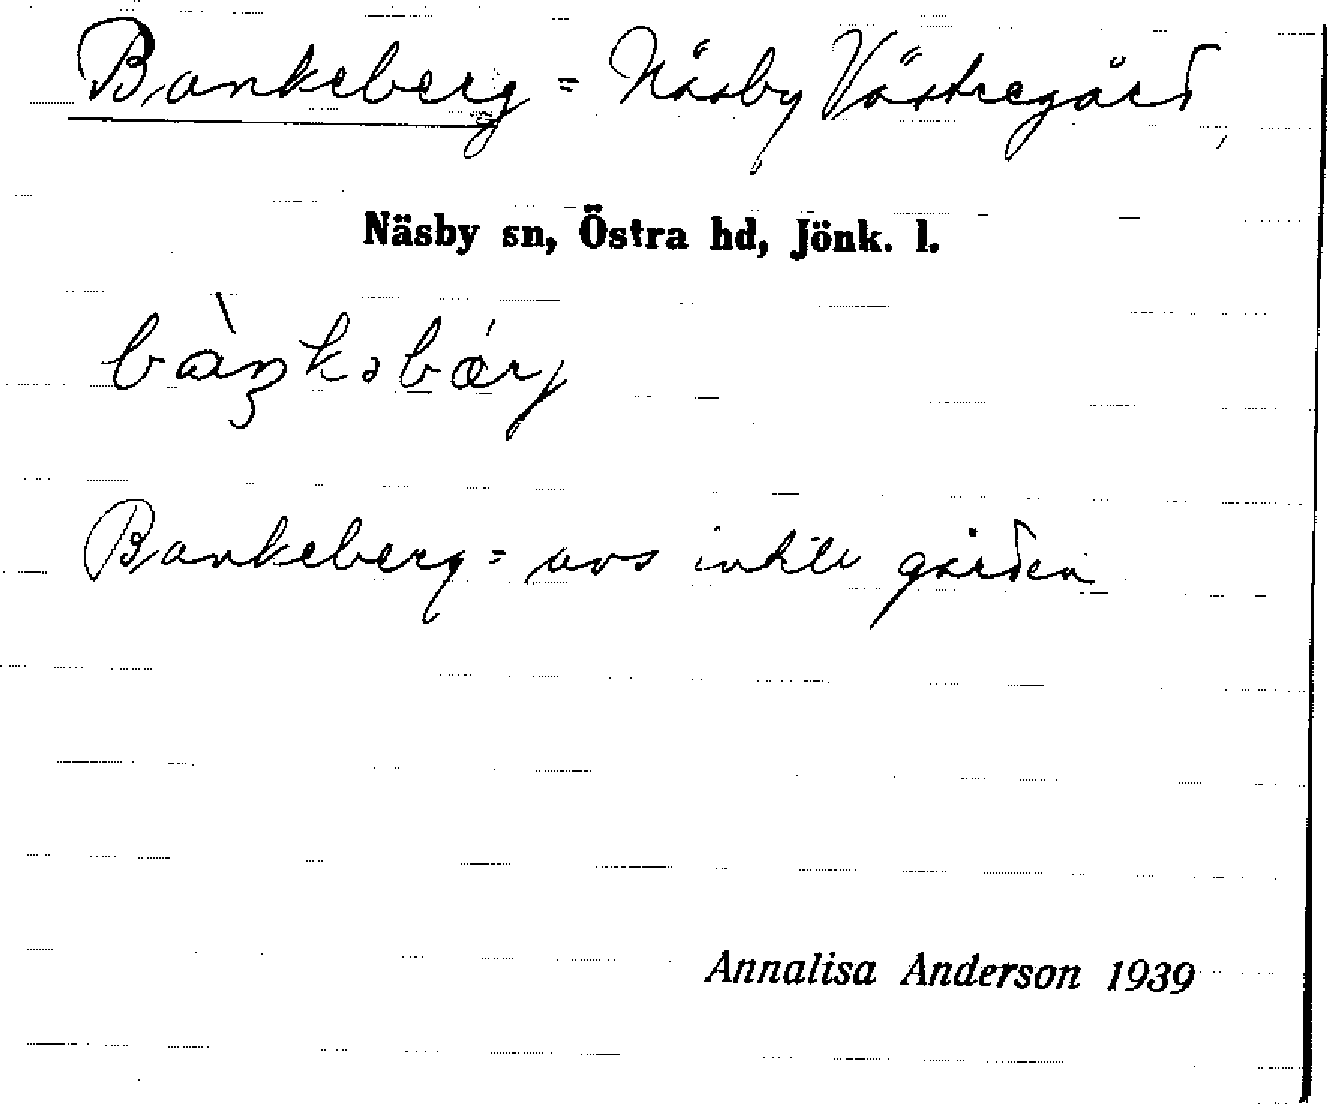 Bankeberg = Näsby Västregård,
Näsby sn, Östra hd, Jönk. l.
bàŋkəbærj
Bankeberg = avs intill gården
Annalisa Anderson 1939